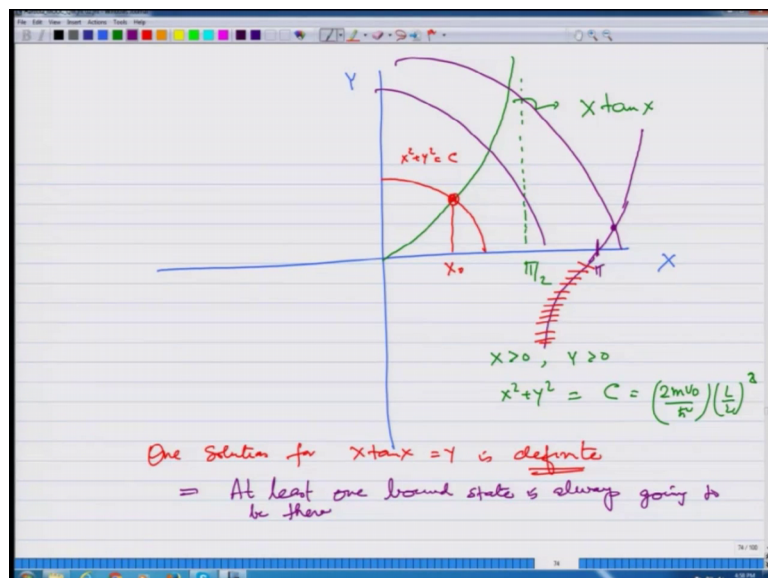 File Edit View Insert Actions Tools Help
Y
x tan x
x²+y² = C
X₀
π/2
π
X
X>0, Y>0
x²+y² = C = (2mV₀/ħ²)(L/2)²
One Solution for x tan x = Y is definite
= At least one bound state is always going to
be there
74 / 100
74
4:58 PM